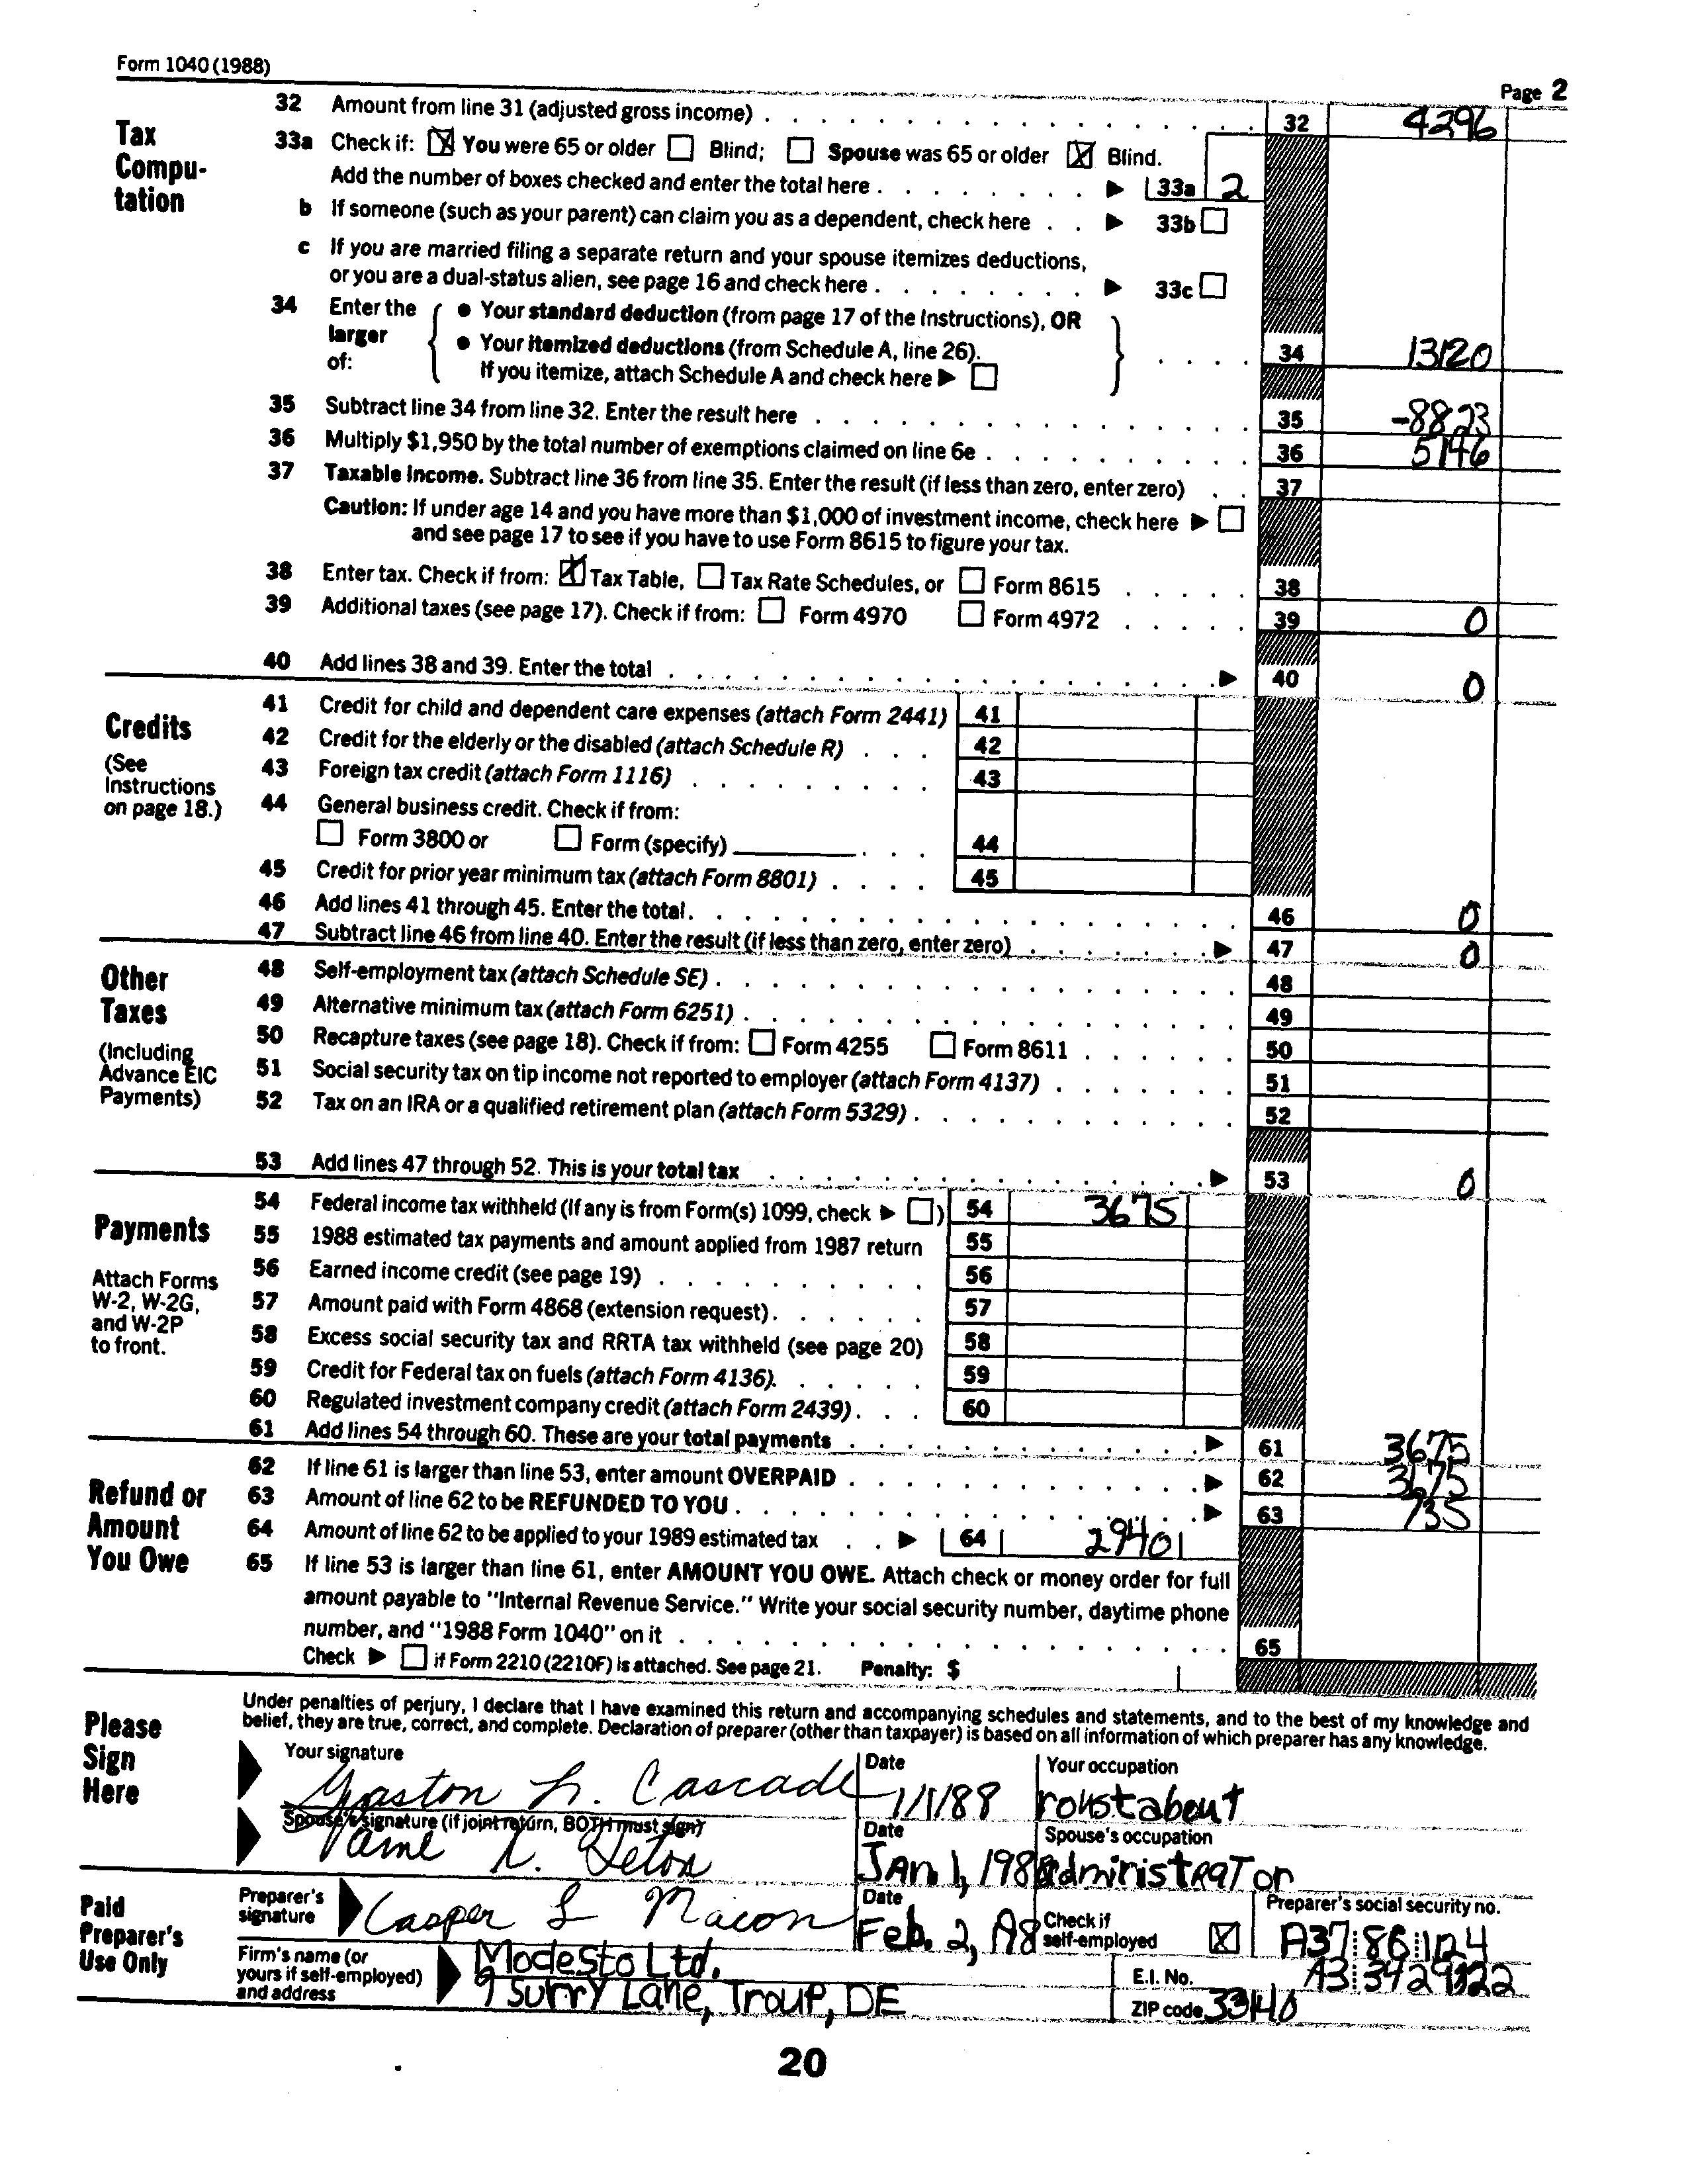 Form 1040 (1988)
Page 2
Tax Compu-tation
32 Amount from line 31 (adjusted gross income) 32 4296
33a Check if: You were 65 or older Blind; Spouse was 65 or older Blind.
Add the number of boxes checked and enter the total here 33a 2
b If someone (such as your parent) can claim you as a dependent, check here 33b
c If you are married filing a separate return and your spouse itemizes deductions,
or you are a dual-status alien, see page 16 and check here 33c
34 Enter the larger of:
● Your standard deduction (from page 17 of the Instructions), OR
● Your itemized deductions (from Schedule A, line 26).
If you itemize, attach Schedule A and check here
34 13120
35 Subtract line 34 from line 32. Enter the result here 35 -8823
36 Multiply $1,950 by the total number of exemptions claimed on line 6e 36 5146
37 Taxable Income. Subtract line 36 from line 35. Enter the result (if less than zero, enter zero) 37
Caution: If under age 14 and you have more than $1,000 of investment income, check here
and see page 17 to see if you have to use Form 8615 to figure your tax.
38 Enter tax. Check if from: Tax Table, Tax Rate Schedules, or Form 8615 38
39 Additional taxes (see page 17). Check if from: Form 4970 Form 4972 39 0
40 Add lines 38 and 39. Enter the total 40 0
Credits
(See Instructions on page 18.)
41 Credit for child and dependent care expenses (attach Form 2441) 41
42 Credit for the elderly or the disabled (attach Schedule R) 42
43 Foreign tax credit (attach Form 1116) 43
44 General business credit. Check if from:
Form 3800 or Form (specify) 44
45 Credit for prior year minimum tax (attach Form 8801) 45
46 Add lines 41 through 45. Enter the total 46 0
47 Subtract line 46 from line 40. Enter the result (if less than zero, enter zero) 47 0
Other Taxes
(Including Advance EIC Payments)
48 Self-employment tax (attach Schedule SE) 48
49 Alternative minimum tax (attach Form 6251) 49
50 Recapture taxes (see page 18). Check if from: Form 4255 Form 8611 50
51 Social security tax on tip income not reported to employer (attach Form 4137) 51
52 Tax on an IRA or a qualified retirement plan (attach Form 5329) 52
53 Add lines 47 through 52. This is your total tax 53 0
Payments
Attach Forms W-2, W-2G, and W-2P to front.
54 Federal income tax withheld (If any is from Form(s) 1099, check ) 54 3675
55 1988 estimated tax payments and amount applied from 1987 return 55
56 Earned income credit (see page 19) 56
57 Amount paid with Form 4868 (extension request) 57
58 Excess social security tax and RRTA tax withheld (see page 20) 58
59 Credit for Federal tax on fuels (attach Form 4136) 59
60 Regulated investment company credit (attach Form 2439) 60
61 Add lines 54 through 60. These are your total payments 61 3675
Refund or Amount You Owe
62 If line 61 is larger than line 53, enter amount OVERPAID 62 3675
63 Amount of line 62 to be REFUNDED TO YOU 63 735
64 Amount of line 62 to be applied to your 1989 estimated tax 64 2940
65 If line 53 is larger than line 61, enter AMOUNT YOU OWE. Attach check or money order for full
amount payable to "Internal Revenue Service." Write your social security number, daytime phone
number, and "1988 Form 1040" on it 65
Check if Form 2210 (2210F) is attached. See page 21. Penalty: $
Please Sign Here
Under penalties of perjury, I declare that I have examined this return and accompanying schedules and statements, and to the best of my knowledge and
belief, they are true, correct, and complete. Declaration of preparer (other than taxpayer) is based on all information of which preparer has any knowledge.
Your signature Date Your occupation
Gaston h. Cascade 1/1/88 roustabout
Spouse's signature (if joint return, BOTH must sign) Date Spouse's occupation
JAN. 1, 198 administRaTor
Paid Preparer's Use Only
Preparer's signature Casper L Macon
Date Feb. 2, A8
Check if self-employed
Preparer's social security no.
Firm's name (or yours if self-employed) and address
Modesto Ltd.
9 Surry Lane, Troup, DE
E.I. No.
ZIP code 33140
20